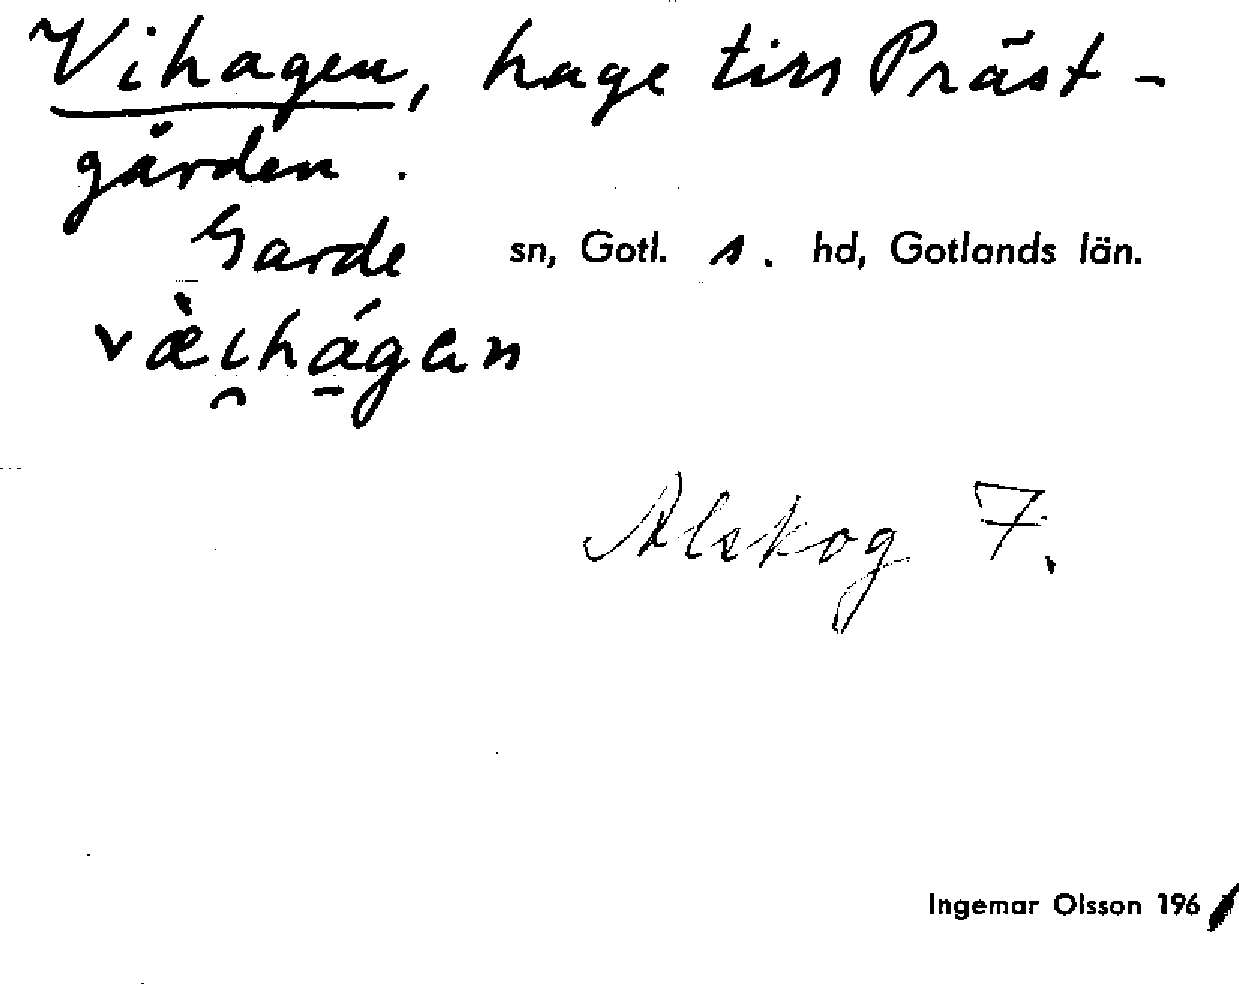 Vihagen, hage till Präst-
gården.
Garde sn, Gotl. s. hd, Gotlands län.
væ̀i̯há̱gan
Alskog 7.
Ingemar Olsson 1961